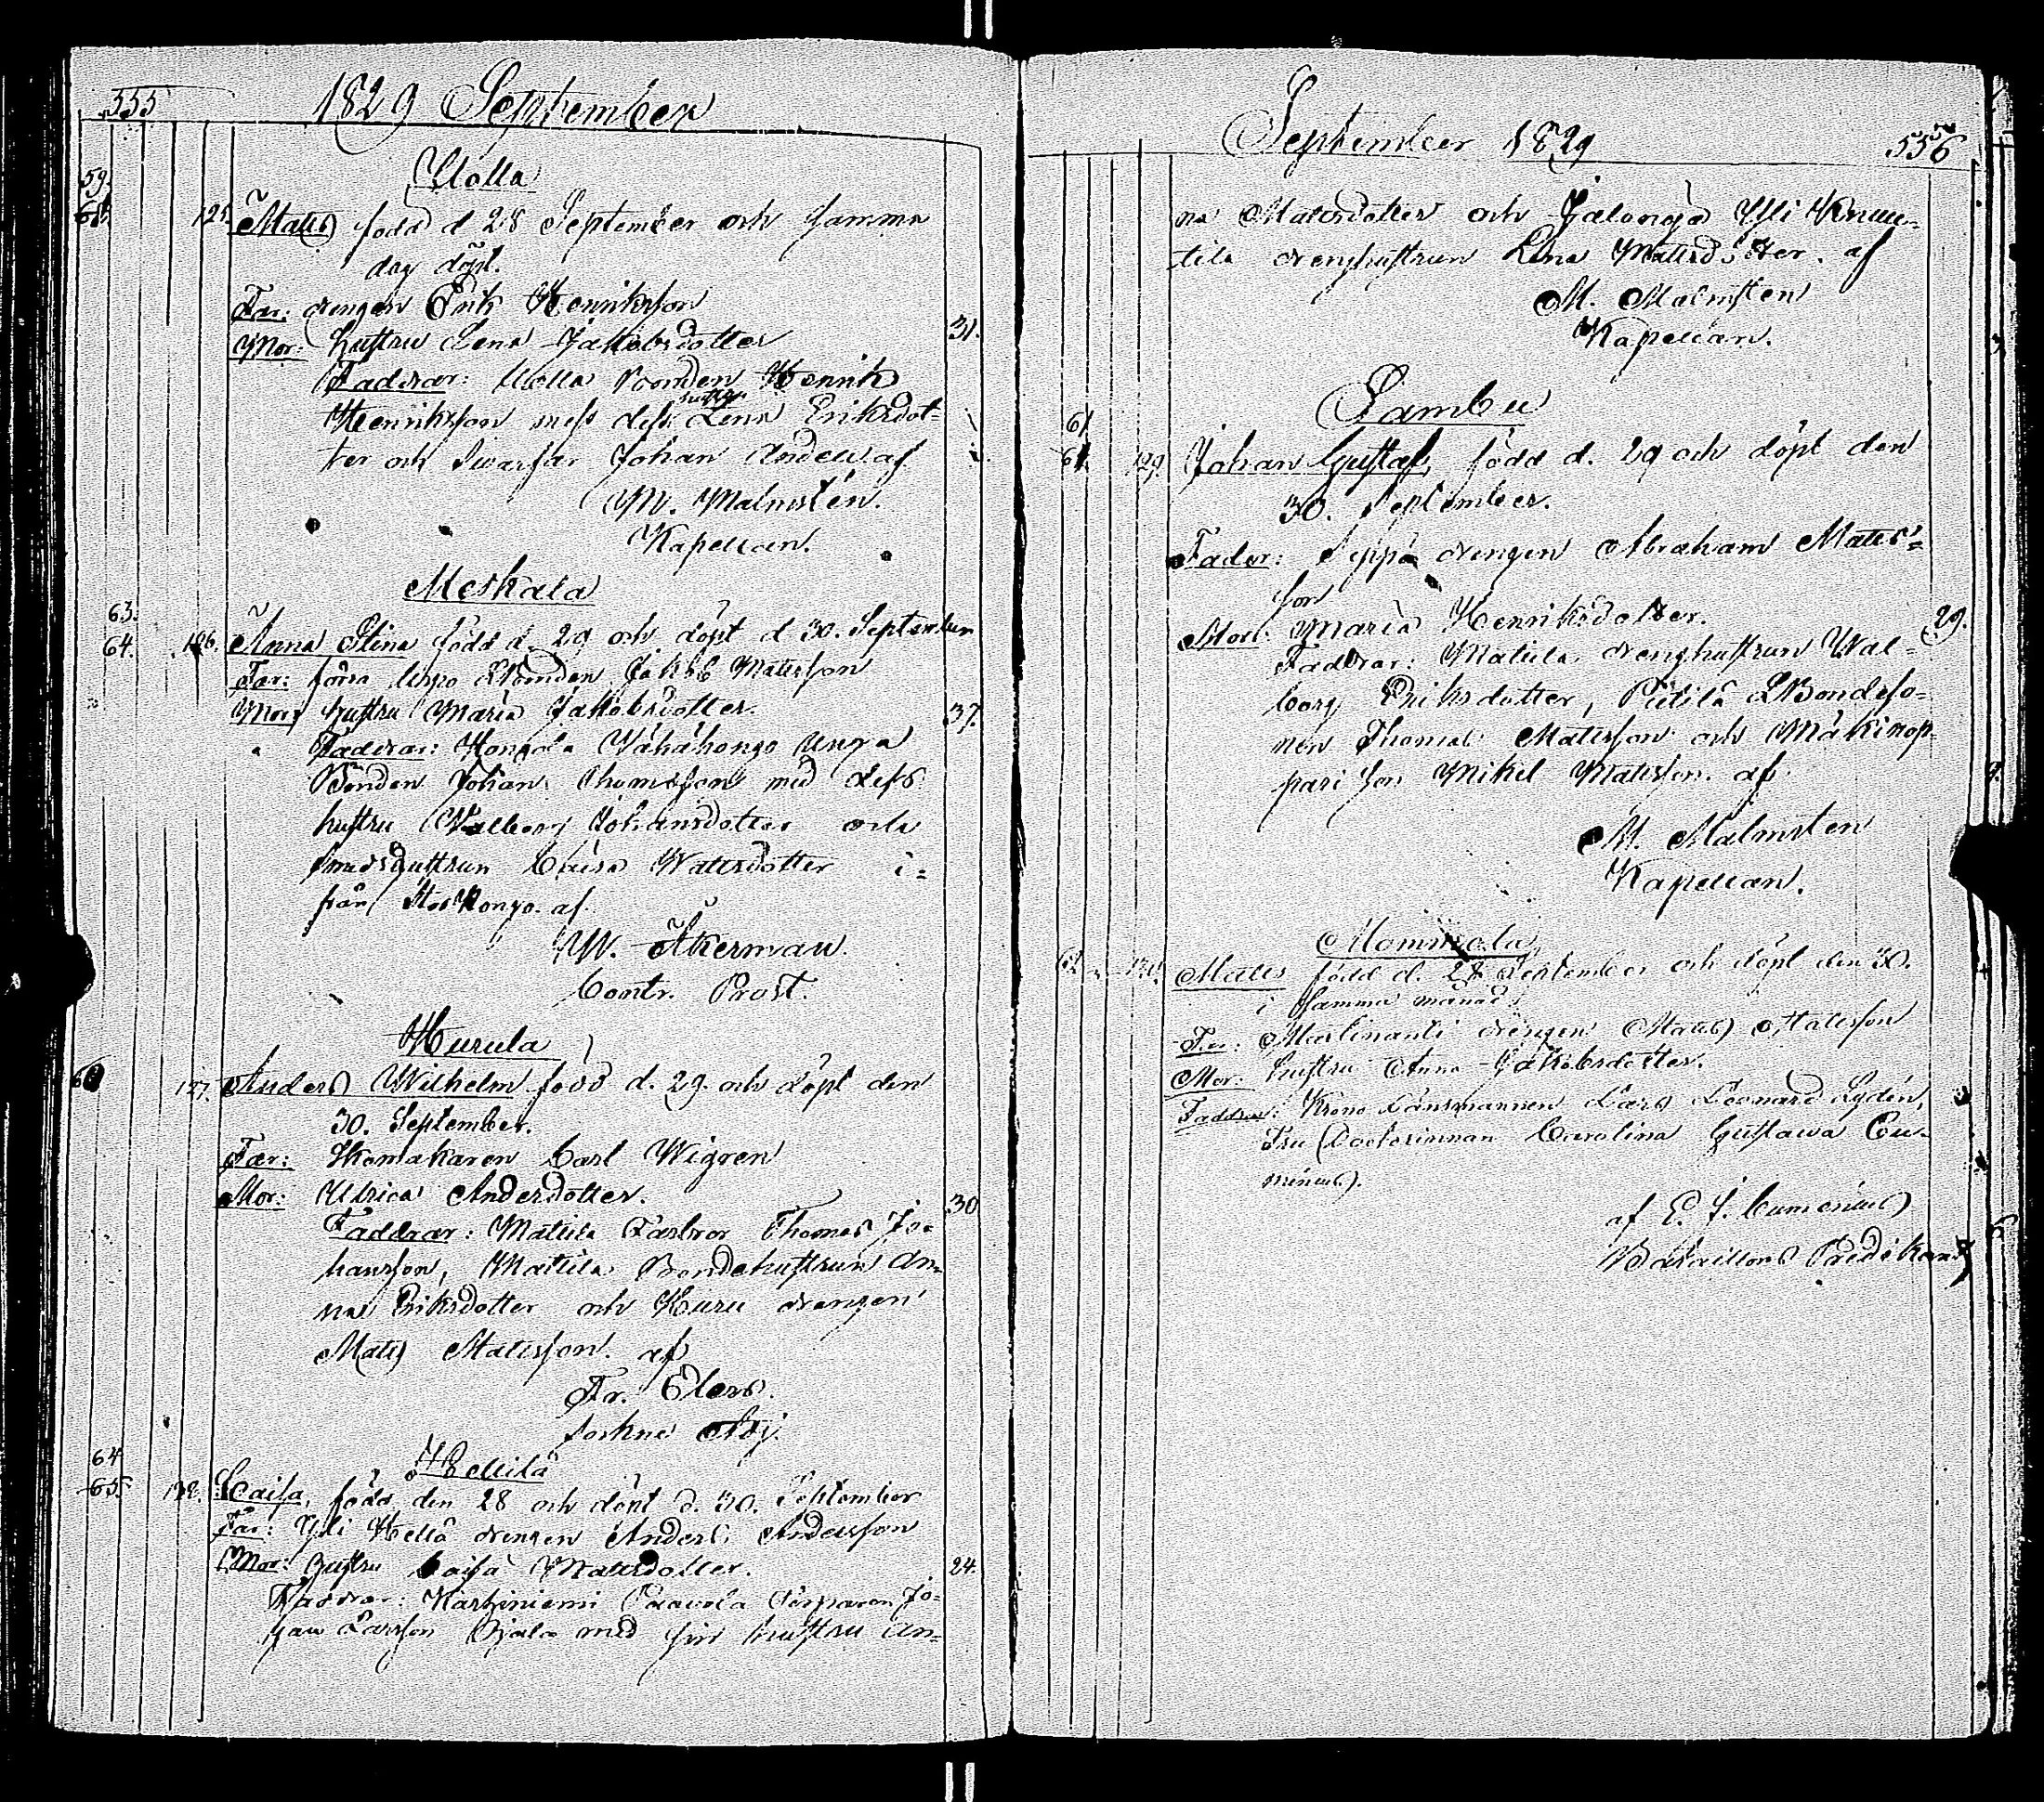 555 1829 September
Ulolla
59.
61. 125. Matts född d 28 September och samma
dag döpt.
Far: drengen Erik Henriksson
Mor: hustru Lena Jakobsdotter 31.
Faddrar: Ulolla Bonden Henrik
hustru
Henriksson med dess Lena Eriksdot-
ter och Swarfar Johan af
M. Malmstén.
Kapellan.
Meskala
63.
64. 126. Anna Stina född d. 29 och döpt d 30. September
Far: förra Uspo LBonden Jakob Mattsson
Mor: hustru Maria Jakobsdotter. 37.
Faddrar: Hongola Vähähongo unga
Bonden Johan Thomsson med dess
hustru Walborg Johansdotter och
smedshustrun Caisa Mattsdotter i-
från Storhongo. af
W. Åkerman.
Contr. Prost.
Hurula
60 127. Anders Wilhelm född d. 29. och döpt den
30. September.
Far: Skomakaren Carl Wigren
Mor: Ulrica Andersdotter. 30
Faddrar: Mattila Farbror Thomas Jo-
hansson, Mattila Bondehustrun An-
na Eriksdotter och Huru drengen
Matts Mattsson. af
Fr. Elers.
sockne Adj.
Hellilä
64
65. 128. Caisa, född den 28 och döpt d. 30. September
Far: Yli Hellä drengen Anders Andersson
Mor: hustru Caisa Mattsdotter. 24.
Faddrar: Karhiniemi Paavola Torparen Jo-
han Larsson Ojala med sin hustru An-
September 1829 556
na Mattsdotter och Jalonoja Yli Knuu-
tila drenghustrun Lena Mattsdotter. af
M. Malmsten
Kapellan.
Sambu
61
61. 129. Johan Gustaf, född d. 29 och döpt den
30. September.
Fader: Seppä drengen Abraham Matts-
son
Mor: Maria Henriksdotter. 29.
Faddrar: Matula drenghustrun Wal-
borg Eriksdotter, Pietilä LBondeso-
nen Thomas Mattsson och Mäkinop-
pari son Mikel Mattsson. af
M. Malmsten
Kapellan.
Mommola
62. 130. Matts född d. 28 September och döpt den 30.
i samma månad.
Far: drengen Matts Mattsson
Mor: hustru Anna Jakobsdotter.
Faddrar: Krono Länsmannen Lars Leonard Lydén,
Fru Doctorinnan Carolina Gustawa Cu-
menius.
af E. J. Cumenius
Bataillons Predikant